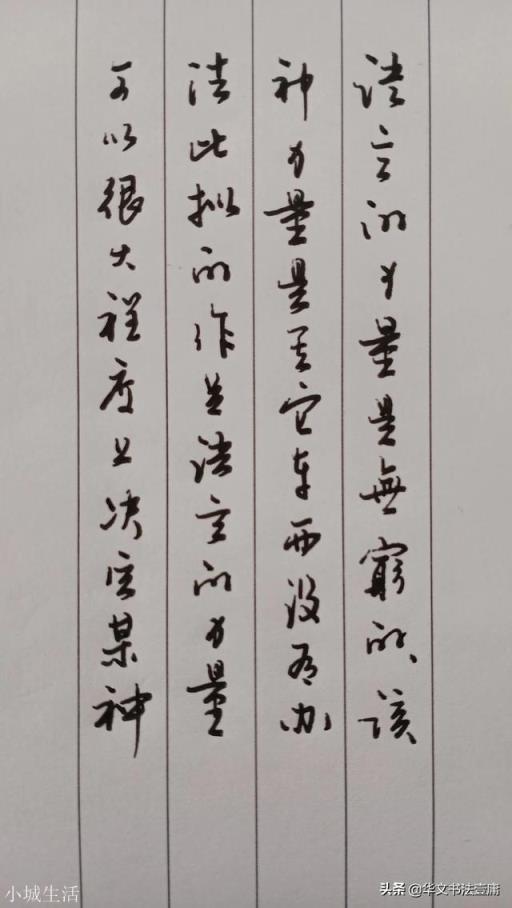 语言的力量是無窮的、该
神力量是其它东西没有办
法比拟的作且语言的力量
可以很大程度上决定某神
小城生活
头条 @华文书法壹庸